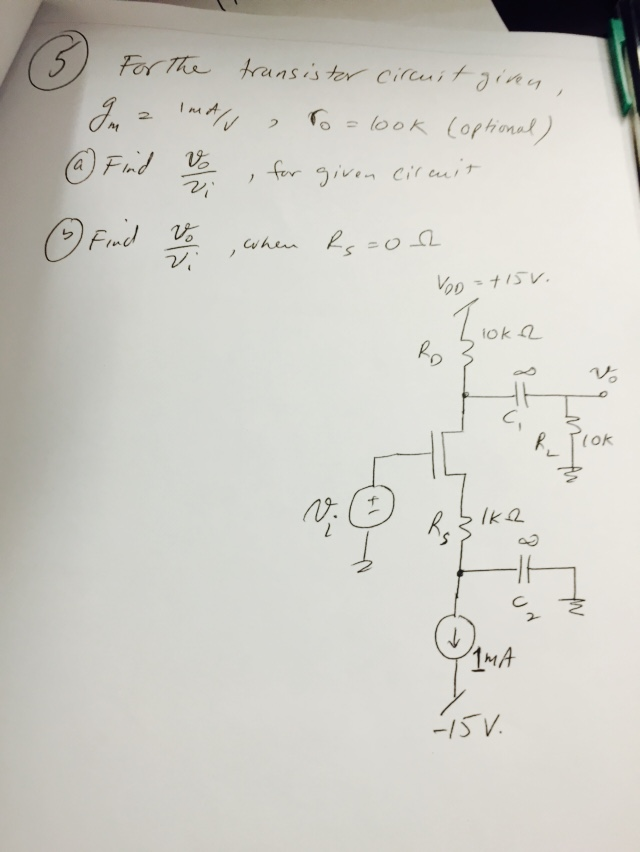 5 For the transistor circuit given,
gm = 1mA/V, ro = 100K (optional)
a Find vo/vi, for given circuit
b Find vo/vi, when Rs = 0 Ω
VDD = +15V.
RD 10K Ω
∞ vo
C1 RL 10K
vi + −
Rs 1K Ω
∞
C2
1mA
-15V.